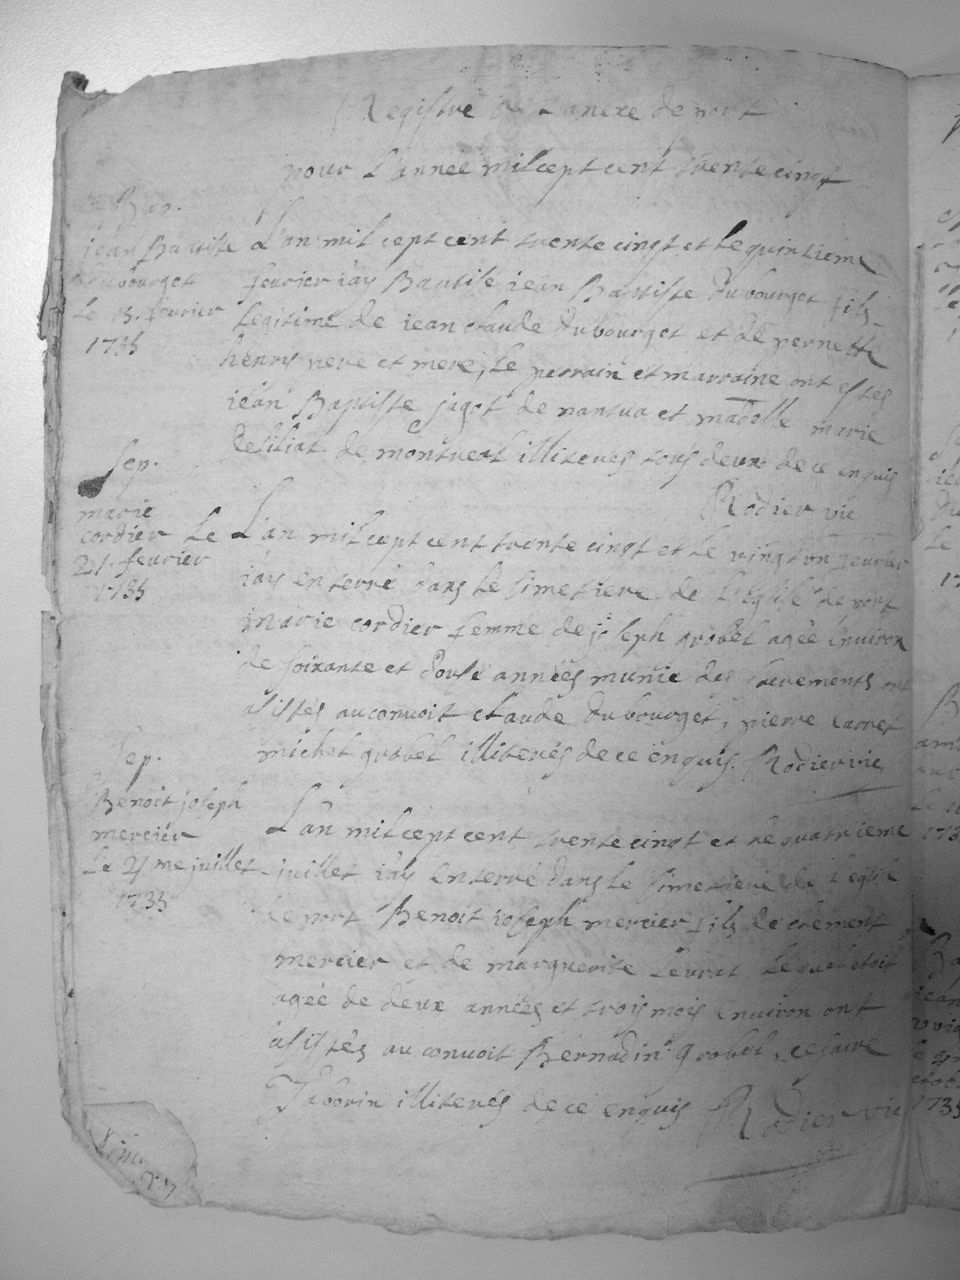 Registre de Lanexe de nort
pour L'annee mil cept cent trente cinqt
Bap.
jean Bautiste
Dubourget
Le 15. fevrier
1735
L'an mil cept cent trente cinqt et le quintieme
fevrier iay Bautisé iean Baptiste Dubourget fils
Legitime de iean claude Dubourget et de pernette
henry pere et mere, Le parrain et marraine ont estes
iean Baptiste jagot de nantua et madelle marie
de montreal illiterés tous deux de ce enquis
Rodier vic
Sep.
marie
cordier Le
21 fevrier
1735
L'an mil cept cent trente cinqt et le vingt un fevrier
iay enterré dans le simetiere de L'Eglise de nort
marie cordier femme de joseph grobel agée Environ
de soixante et douse années munie des sacrements ont
asistés au convoit claude Dubourget, pierre carret
michel grobel illiterés de ce enquis. Rodier vic
Sep.
Benoit joseph
mercier
Le 4me juillet
1735
L'an mil cept cent trente cinqt et le quatrieme
juillet i'ay Enterré dans le simetiere de l'eglise
de nort Benoit ioseph mercier fils de clement
mercier et de marguerite Levrat Lequel étoit
agée de deux années et trois mois Environ ont
asistés au convoit Bernadin grobel, cesaire
Taborin illiterés de ce enquis Rodier vic